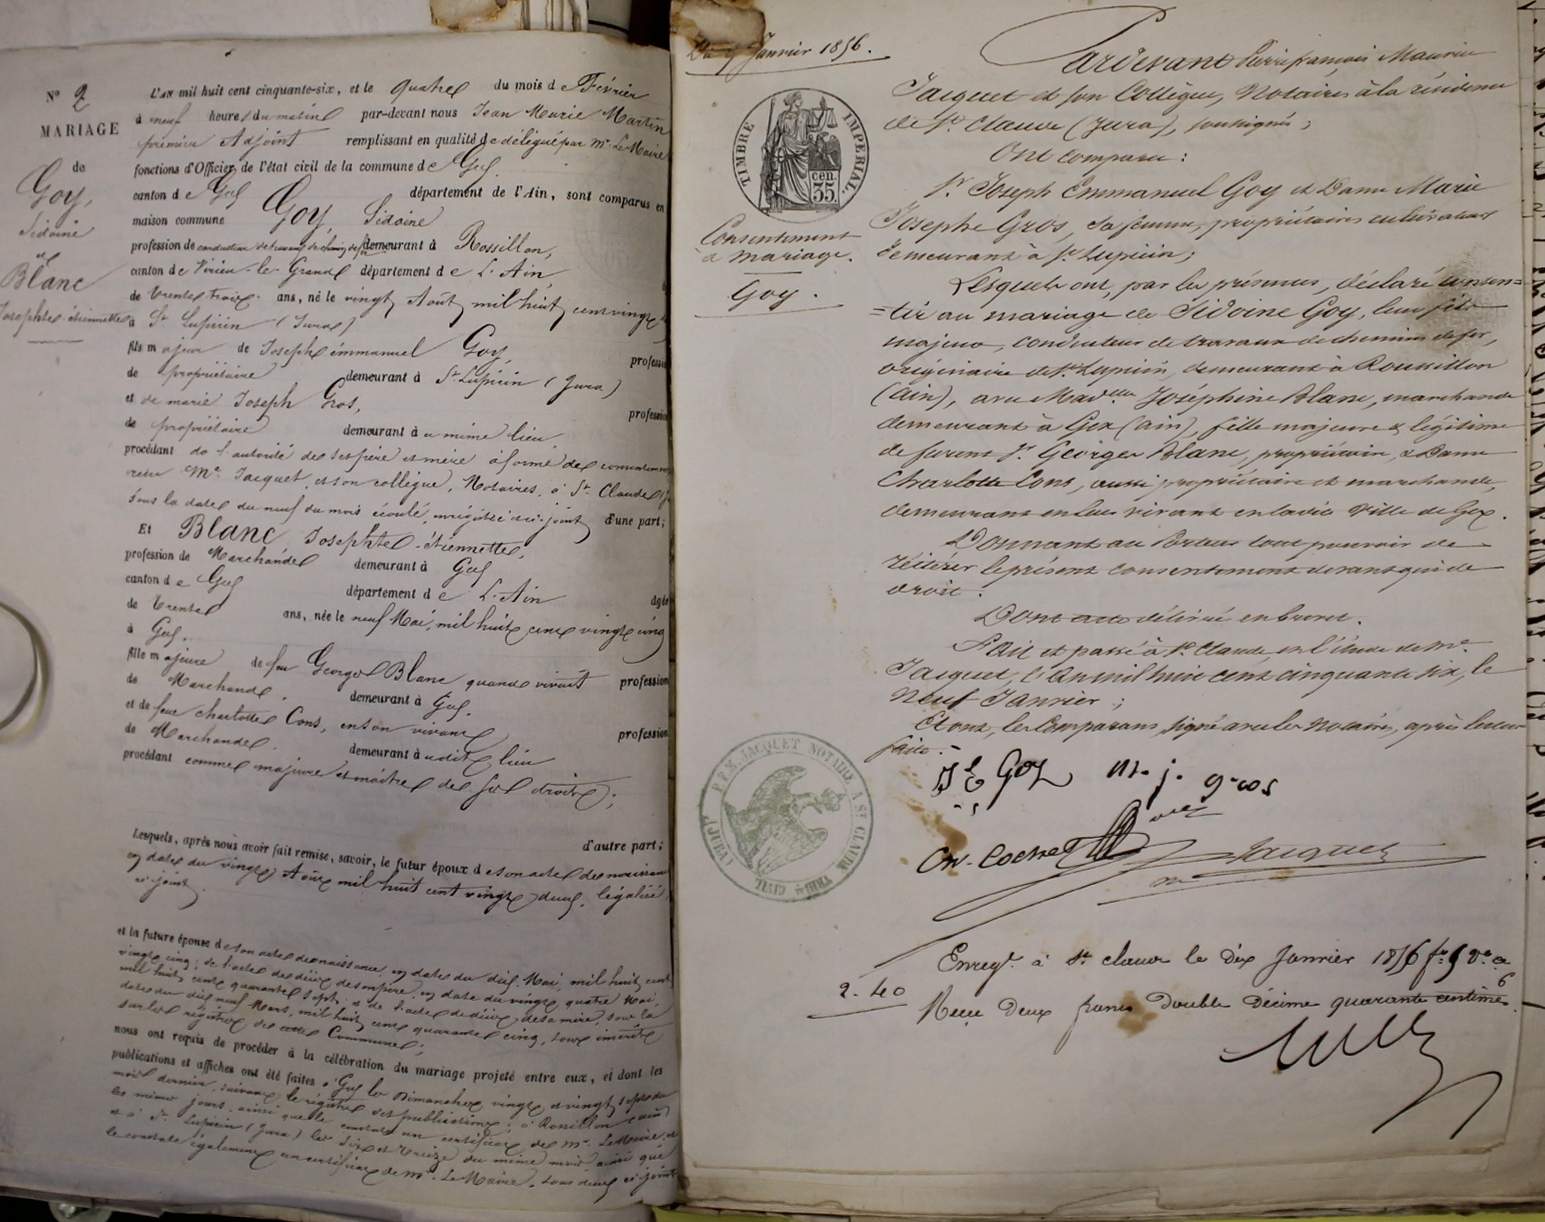 N° 2
MARIAGE
de
Goy,
Sidoine
et
Blanc
Josephte-étiennette
L'AN mil huit cent cinquante-six, et le quatre du mois de Février
à neuf heures du matin par-devant nous Jean Marie Martin
premier Adjoint remplissant en qualité de délégué par Mr Le Maire
fonctions d'Officier de l'état civil de la commune de Gex
canton de Gex département de l'Ain, sont comparus en
maison commune Goy, Sidoine
profession de conducteur de travaux de chemin de fer demeurant à Rossillon,
canton de Virieu-le-Grand département de L'Ain
de trente trois ans, né le vingt Août mil huit cent vingt
à St Lupicin (Jura)
fils majeur de Joseph émmanuel Goy, profession
de propriétaire demeurant à St Lupicin (Jura)
et de marie Joseph Gros, profession
de propriétaire demeurant au même lieu
procédant de l'autorité de ses père et mère à forme de consentement
reçu Me Jacquet et son collègue, Notaires, à St Claude
sous la date du neuf du mois écoulé, enrégistré ci-joint d'une part;
Et Blanc Josephte-étiennette,
profession de Marchande demeurant à Gex
canton de Gex département de L'Ain âgée
de trente ans, née le neuf Mai, mil huit cent vingt cinq
à Gex.
fille majeure de feu George Blanc quand vivait profession
de Marchand, demeurant à Gex.
et de feue charlotte Cons, en son vivant profession
de Marchande. demeurant audit lieu
procédant comme majeure et maîtresse de ses droits;
d'autre part;
Lesquels, après nous avoir fait remise, savoir, le futur époux de son acte de naissance
en date du vingt Août mil huit cent vingt deux, légalisé
ci-joint.
et la future épouse de son acte de naissance, en date du dix Mai, mil huit cent
vingt cinq; de l'acte de décès de son père, en date du vingt quatre Mai,
mil huit cent quarante sept, et de l'acte de décès de sa mère, sous la
date du dix neuf Mars, mil huit cent quarante cinq, tous inscrits
sur les régistres de cette Commune;
nous ont requis de procéder à la célébration du mariage projeté entre eux, et dont les
publications et affiches ont été faites à Gex les Dimanches vingt et vingt sept du
mois dernier, suivant le régistre des publications; à Rossillon (Ain)
les mêmes jours, ainsi que le constate un certificat de Mr Le Maire, et
et à St Lupicin (Jura) les six et treize du même mois ainsi que
le constate également un certificat de Mr Le Maire, tous deux ci-joints
Du 9 Janvier 1856.
TIMBRE IMPERIAL.
cen.
35.
Consentement
à mariage.
Goy.
Pardevant Pierre françois Maurice
Jacquet et son Collègue, Notaires à la résidence
de St Claude (Jura), soussignés;
Ont comparu:
Sr Joseph Emmanuel Goy et Dame Marie
Josephe Gros, sa femme, propriétaires cultivateurs
demeurant à St Lupicin;
Lesquels ont, par les présentes, déclaré consen=
=tir au mariage de Sidoine Goy, leur fils
majeur, conducteur de travaux de chemins de fer,
originaire de St Lupicin, demeurant à Roussillon
(Ain), avec Madelle Joséphine Blanc, marchande
demeurant à Gex (ain), fille majeure & légitime
de furent Sr Georges Blanc, propriétaire, & Dame
Charlotte Cons, aussi propriétaire et marchande,
demeurant en leur vivant en la dite ville de Gex.
Donnant au Porteur tout pouvoir de
réitérer le présent consentement devant qui de
droit.
Dont acte délivré en brevet.
Fait et passé à St Claude, en l'étude de Me
Jacquet, l'an mil huit cent cinquante six, le
neuf Janvier;
Et ont, les Comparans, signé avec les Notaires, après lecture
faite.
J E Goy m. j. gros
Jacquet
P.F.M. JACQUET NOTAIRE A ST CLAUDE TRIB. CIVIL (JURA)
Enregt. à St claude le dix Janvier 1856 fo 5 Vo c. 6
2.40
Reçu Deux francs Double Décime quarante centimes.